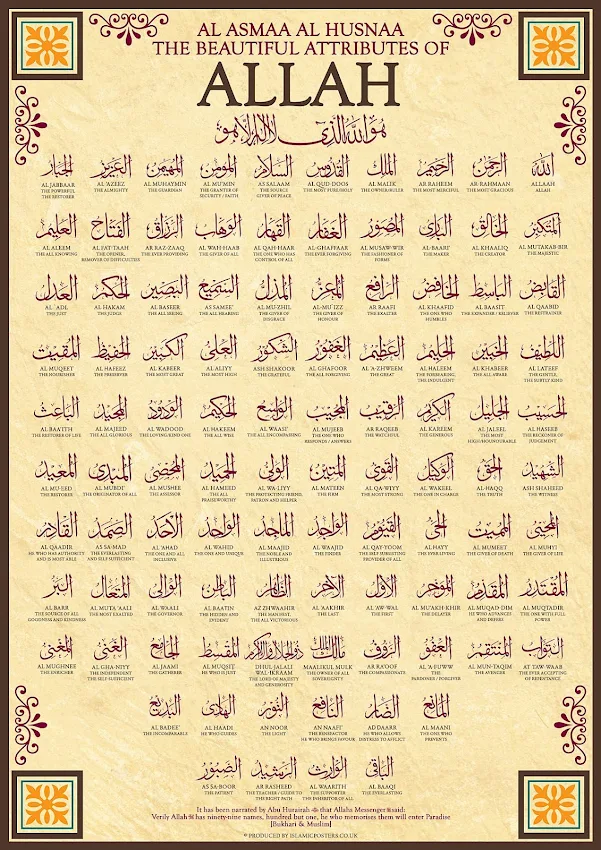 AL ASMAA AL HUSNAA
THE BEAUTIFUL ATTRIBUTES OF
ALLAH
هو الله الذي لا اله الا هو
الله
ALLAAH
ALLAH
الرحمن
AR-RAHMAAN
THE MOST GRACIOUS
الرحيم
AR RAHEEM
THE MOST MERCIFUL
الملك
AL MALIK
THE OWNER/RULER
القدوس
AL QUD-DOOS
THE MOST PURE/HOLY
السلام
AS SALAAM
THE SOURCE
GIVER OF PEACE
المؤمن
AL MU'MIN
THE GRANTER OF
SECURITY / FAITH
المهيمن
AL MUHAYMIN
THE GUARDIAN
العزيز
AL 'AZEEZ
THE ALMIGHTY
الجبار
AL JABBAAR
THE POWERFUL
THE RESTORER
المتكبر
AL MUTAKAB-BIR
THE MAJESTIC
الخالق
AL KHAALIQ
THE CREATOR
البارئ
AL BAARI'
THE MAKER
المصور
AL MUSAW-WIR
THE FASHIONER OF
FORMS
الغفار
AL-GHAFFAAR
THE EVER FORGIVING
القهار
AL QAH-HAAR
THE ONE WHO HAS
CONTROL OF ALL
الوهاب
AL WAH-HAAB
THE GIVER OF ALL
الرزاق
AR RAZ-ZAAQ
THE EVER PROVIDING
الفتاح
AL FAT-TAAH
THE OPENER,
REMOVER OF DIFFICULTIES
العليم
AL ALEEM
THE ALL KNOWING
القابض
AL QAABID
THE RESTRAINER
الباسط
AL BAASIT
THE EXPANDER / RELIEVER
الخافض
AL KHAAFID
THE ONE WHO
HUMBLES
الرافع
AR RAAFI
THE EXALTER
المعز
AL-MU'IZZ
THE GIVER OF
HONOUR
المذل
AL-MU'ZHIL
THE GIVER OF
DISGRACE
السميع
AS SAMEE'
THE ALL HEARING
البصير
AL BASEER
THE ALL SEEING
الحكم
AL HAKAM
THE JUDGE
العدل
AL 'ADL
THE JUST
اللطيف
AL LATEEF
THE GENTLE,
THE SUBTLY KIND
الخبير
AL KHABEER
THE ALL AWARE
الحليم
AL HALEEM
THE FORBEARING,
THE INDULGENT
العظيم
AL 'A-ZHWEEM
THE GREAT
الغفور
AL GHAFOOR
THE ALL FORGIVING
الشكور
ASH SHAKOOR
THE GRATEFUL
العلي
AL ALIYY
THE MOST HIGH
الكبير
AL KABEER
THE MOST GREAT
الحفيظ
AL HAFEEZ
THE PRESERVER
المقيت
AL MUQEET
THE NOURISHER
الحسيب
AL HASEEB
THE RECKONER OF
JUDGEMENT
الجليل
AL JALEEL
THE MOST
HIGH/HOUNOURABLE
الكريم
AL KAREEM
THE GENEROUS
الرقيب
AR RAQEEB
THE WATCHFUL
المجيب
AL MUJEEB
THE ONE WHO
RESPONDS / ANSWERS
الواسع
AL WAASI'
THE ALL ENCOMPASSING
الحكيم
AL HAKEEM
THE ALL WISE
الودود
AL WADOOD
THE LOVING/KIND ONE
المجيد
AL MAJEED
THE ALL GLORIOUS
الباعث
AL BAA'ITH
THE RESTORER OF LIFE
الشهيد
ASH SHAHEED
THE WITNESS
الحق
AL-HAQQ
THE TRUTH
الوكيل
AL WAKEEL
THE ONE IN CHARGE
القوي
AL QA-WIYY
THE MOST STRONG
المتين
AL MATEEN
THE FIRM
الولي
AL WA-LIYY
THE PROTECTING FRIEND,
PATRON AND HELPER
الحميد
AL HAMEED
THE ALL
PRAISEWORTHY
المحصي
AL MUSHEE
THE ASSESSOR
المبدئ
AL MUBDI'
THE ORIGINATOR OF ALL
المعيد
AL MU-EED
THE RESTORER
المحيي
AL MUHYI
THE GIVER OF LIFE
المميت
AL MUMEET
THE GIVER OF DEATH
الحي
AL HAYY
THE EVER LIVING
القيوم
AL QAY-YOOM
THE SELF SUBSISTING
PROVIDER OF ALL
الواجد
AL WAAJID
THE FINDER
الماجد
AL MAAJID
THE NOBLE AND
ILLUSTRIOUS
الواحد
AL WAHID
THE ONE AND UNIQUE
الاحد
AL 'AHAD
THE ONE AND ALL
INCLUSIVE
الصمد
AS SA-MAD
THE EVERLASTING
AND SELF SUFFICIENT
القادر
AL QAADIR
HE WHO HAS AUTHORITY
AND IS MOST ABLE
المقتدر
AL MUQTADIR
THE ONE WITH FULL
POWER
المقدم
AL MUQAD-DIM
HE WHO ADVANCES
AND DEFERS
المؤخر
AL MU'AKH-KHIR
THE DELAYER
الأول
AL 'AW-WAL
THE FIRST
الآخر
AL 'AAKHIR
THE LAST
الظاهر
AZ ZHWAAHIR
THE MANIFEST,
THE ALL VICTORIOUS
الباطن
AL BAATIN
THE HIDDEN AND
EVIDENT
الوالي
AL WAALI
THE GOVERNOR
المتعال
AL MUTA 'AALI
THE MOST EXALTED
البر
AL BARR
THE SOURCE OF ALL
GOODNESS AND KINDNESS
التواب
AT TAW-WAAB
THE EVER ACCEPTING
OF REPENTANCE.
المنتقم
AL MUN-TAQIM
THE AVENGER
العفو
AL 'A-FUWW
THE
PARDONER / FORGIVER
الرءوف
AR RA'OOF
THE COMPASSIONATE
مالك الملك
MAALIKUL MULK
THE OWNER OF ALL
SOVEREIGNTY
ذو الجلال والاكرام
DHUL JALALI
WAL-IKRAAM
THE LORD OF MAJESTY
AND GENEROSITY
المقسط
AL MUQSIT
HE WHO IS JUST
الجامع
AL JAAMI
THE GATHERER
الغني
AL GHA-NIYY
THE INDEPENDENT
THE SELF-SUFFICIENT
المغني
AL MUGHNEE
THE ENRICHER
المانع
AL MAANI
THE ONE WHO
PREVENTS.
الضار
AD DAARR
HE WHO ALLOWS
DISTRESS TO AFFLICT
النافع
AN NAAFI'
THE BENEFACTOR
HE WHO BRINGS FAVOUR
النور
AN NOOR
THE LIGHT
الهادي
AL HAADI
HE WHO GUIDES
البديع
AL BADEE'
THE INCOMPARABLE
الباقي
AL BAAQI
THE EVERLASTING
الوارث
AL WAARITH
THE SUPPORTER
THE INHERITOR OF ALL
الرشيد
AR RASHEED
THE TEACHER / GUIDE TO
THE RIGHT PATH
الصبور
AS SA-BOOR
THE PATIENT
It has been narrated by Abu Hurairah that Allahs Messenger ﷺ said:
Verily Allah has ninety-nine names, hundred but one, he who memorises them will enter Paradise
[Bukhari & Muslim]
PRODUCED BY ISLAMICPOSTERS.CO.UK